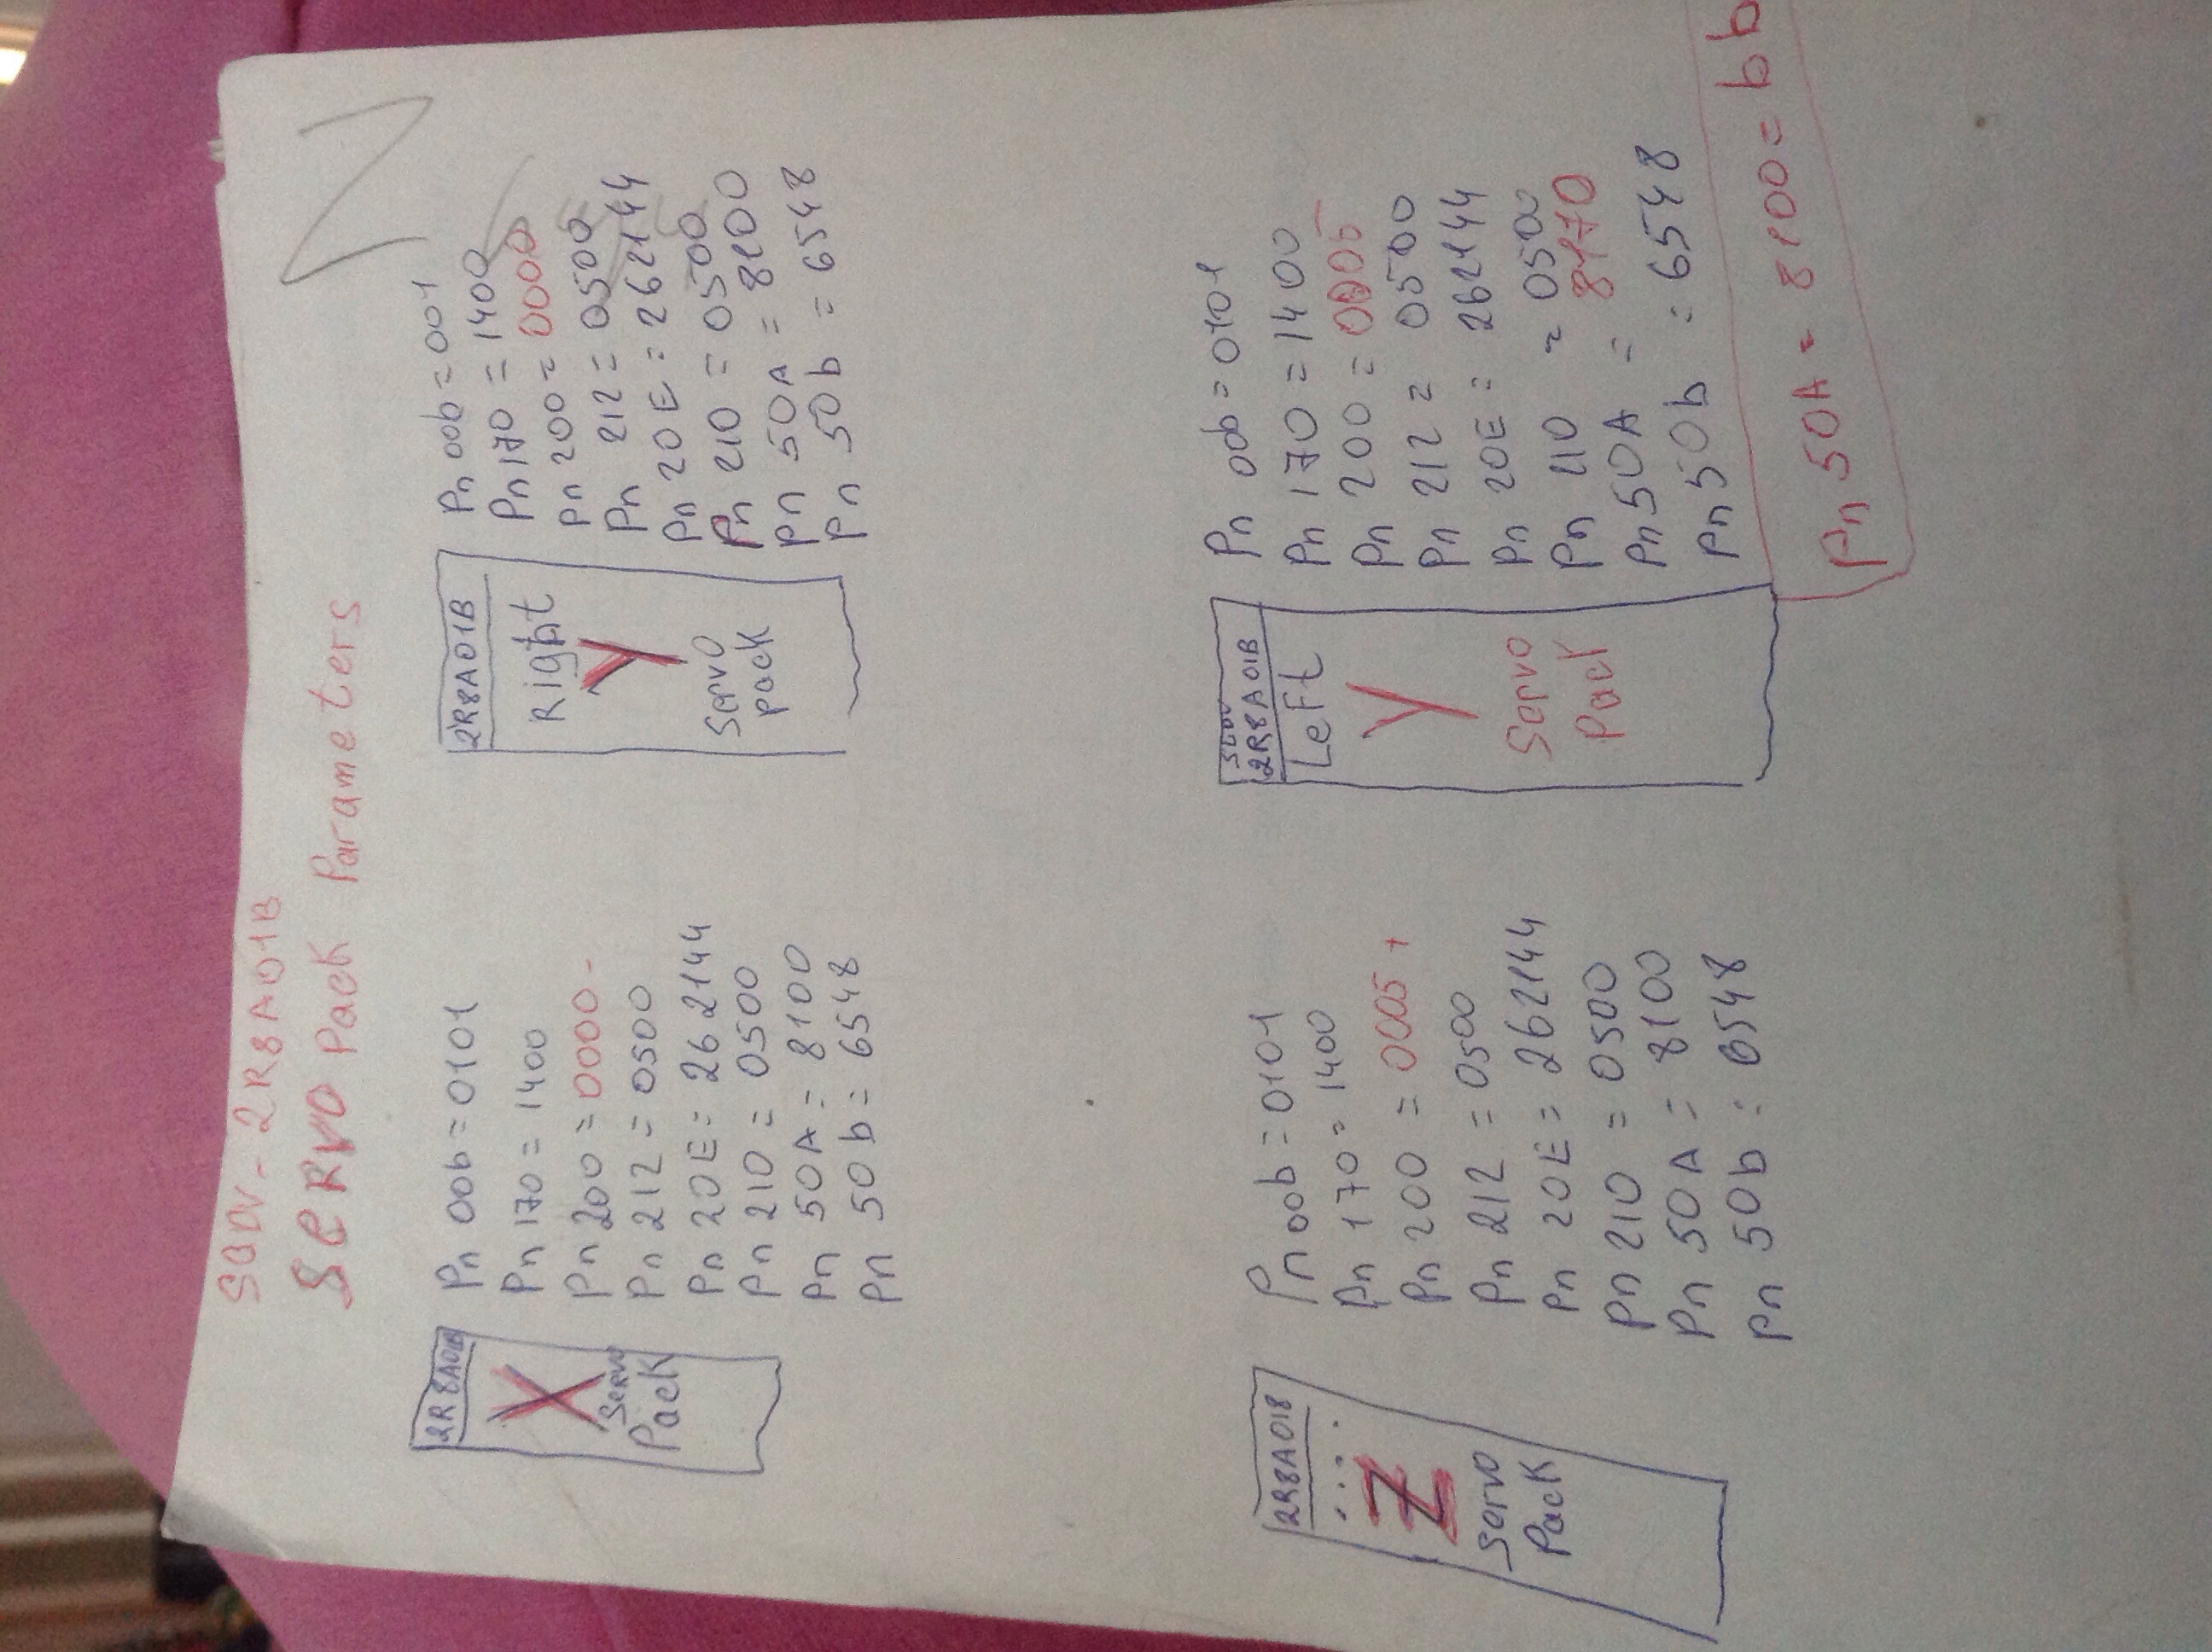 SGDV-2R8A01B
SERVO Pack Parameters
2R8A01B
X
SERVO
Pack
Pn 00b = 0101
Pn 170 = 1400
Pn 200 = 0000 -
Pn 212 = 0500
Pn 20E = 262144
Pn 210 = 0500
Pn 50A = 8100
Pn 50b = 6548
2R8A01B
Right
Y
Servo
pack
Pn 00b = 001
Pn 170 = 1400
Pn 200 = 0000
Pn 212 = 0500
Pn 20E = 262144
Pn 210 = 0500
Pn 50A = 8100
Pn 50b = 6548
2R8A01B
Z
Servo
Pack
Pn 00b = 0101
Pn 170 = 1400
Pn 200 = 0005 +
Pn 212 = 0500
Pn 20E = 262144
Pn 210 = 0500
Pn 50A = 8100
Pn 50b = 6548
2R8A01B
Left
Y
Servo
Pack
Pn 00b = 0101
Pn 170 = 1400
Pn 200 = 0005
Pn 212 = 0500
Pn 20E = 262144
Pn 210 = 0500
Pn 50A = 8170
Pn 50b = 6548
Pn 50A = 8100 = bb